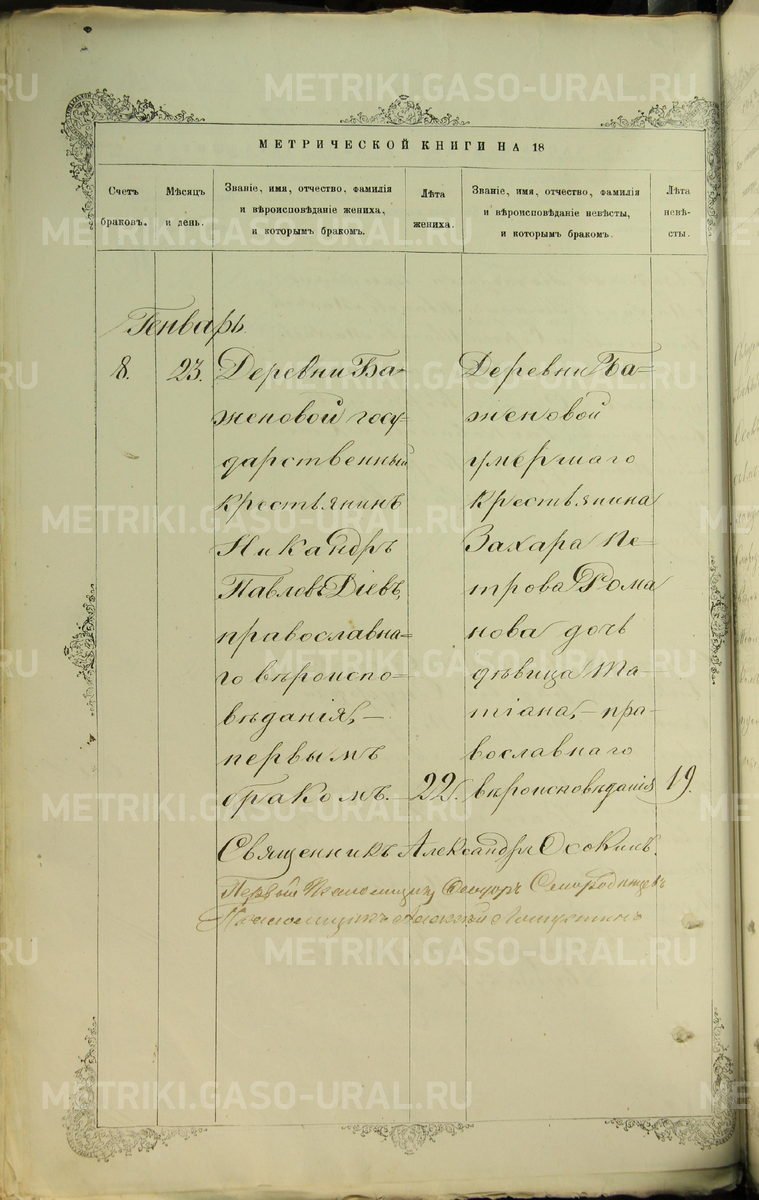 МЕТРИЧЕСКОЙ КНИГИ НА 18
Счетъ
браковъ.
Мѣсяцъ
и день.
Званіе, имя, отчество, фамилія
и вѣроисповѣданіе жениха,
и которымъ бракомъ.
Лѣта
жениха.
Званіе, имя, отчество, фамилія
и вѣроисповѣданіе невѣсты,
и которымъ бракомъ.
Лѣта
невѣ-
сты.
Генварь
8.
23.
Деревни Ба-
женовой госу-
дарственный
крестьянинъ
Никандръ
Павловъ Діевъ,
православна-
го вѣроиспо-
вѣданія, —
первымъ
бракомъ.
22.
Деревни Ба-
женовой
умершаго
крестьянина
Захара Пе-
трова Рома
нова дочь
дѣвица Та-
тіана, — пра-
вославнаго
вѣроисповѣданія
19.
Священникъ Александръ Осокинъ.
Первый Псаломщикъ Ѳеодоръ Смородинцевъ
Псаломщикъ Лопухинъ
METRIKI.GASO-URAL.RU